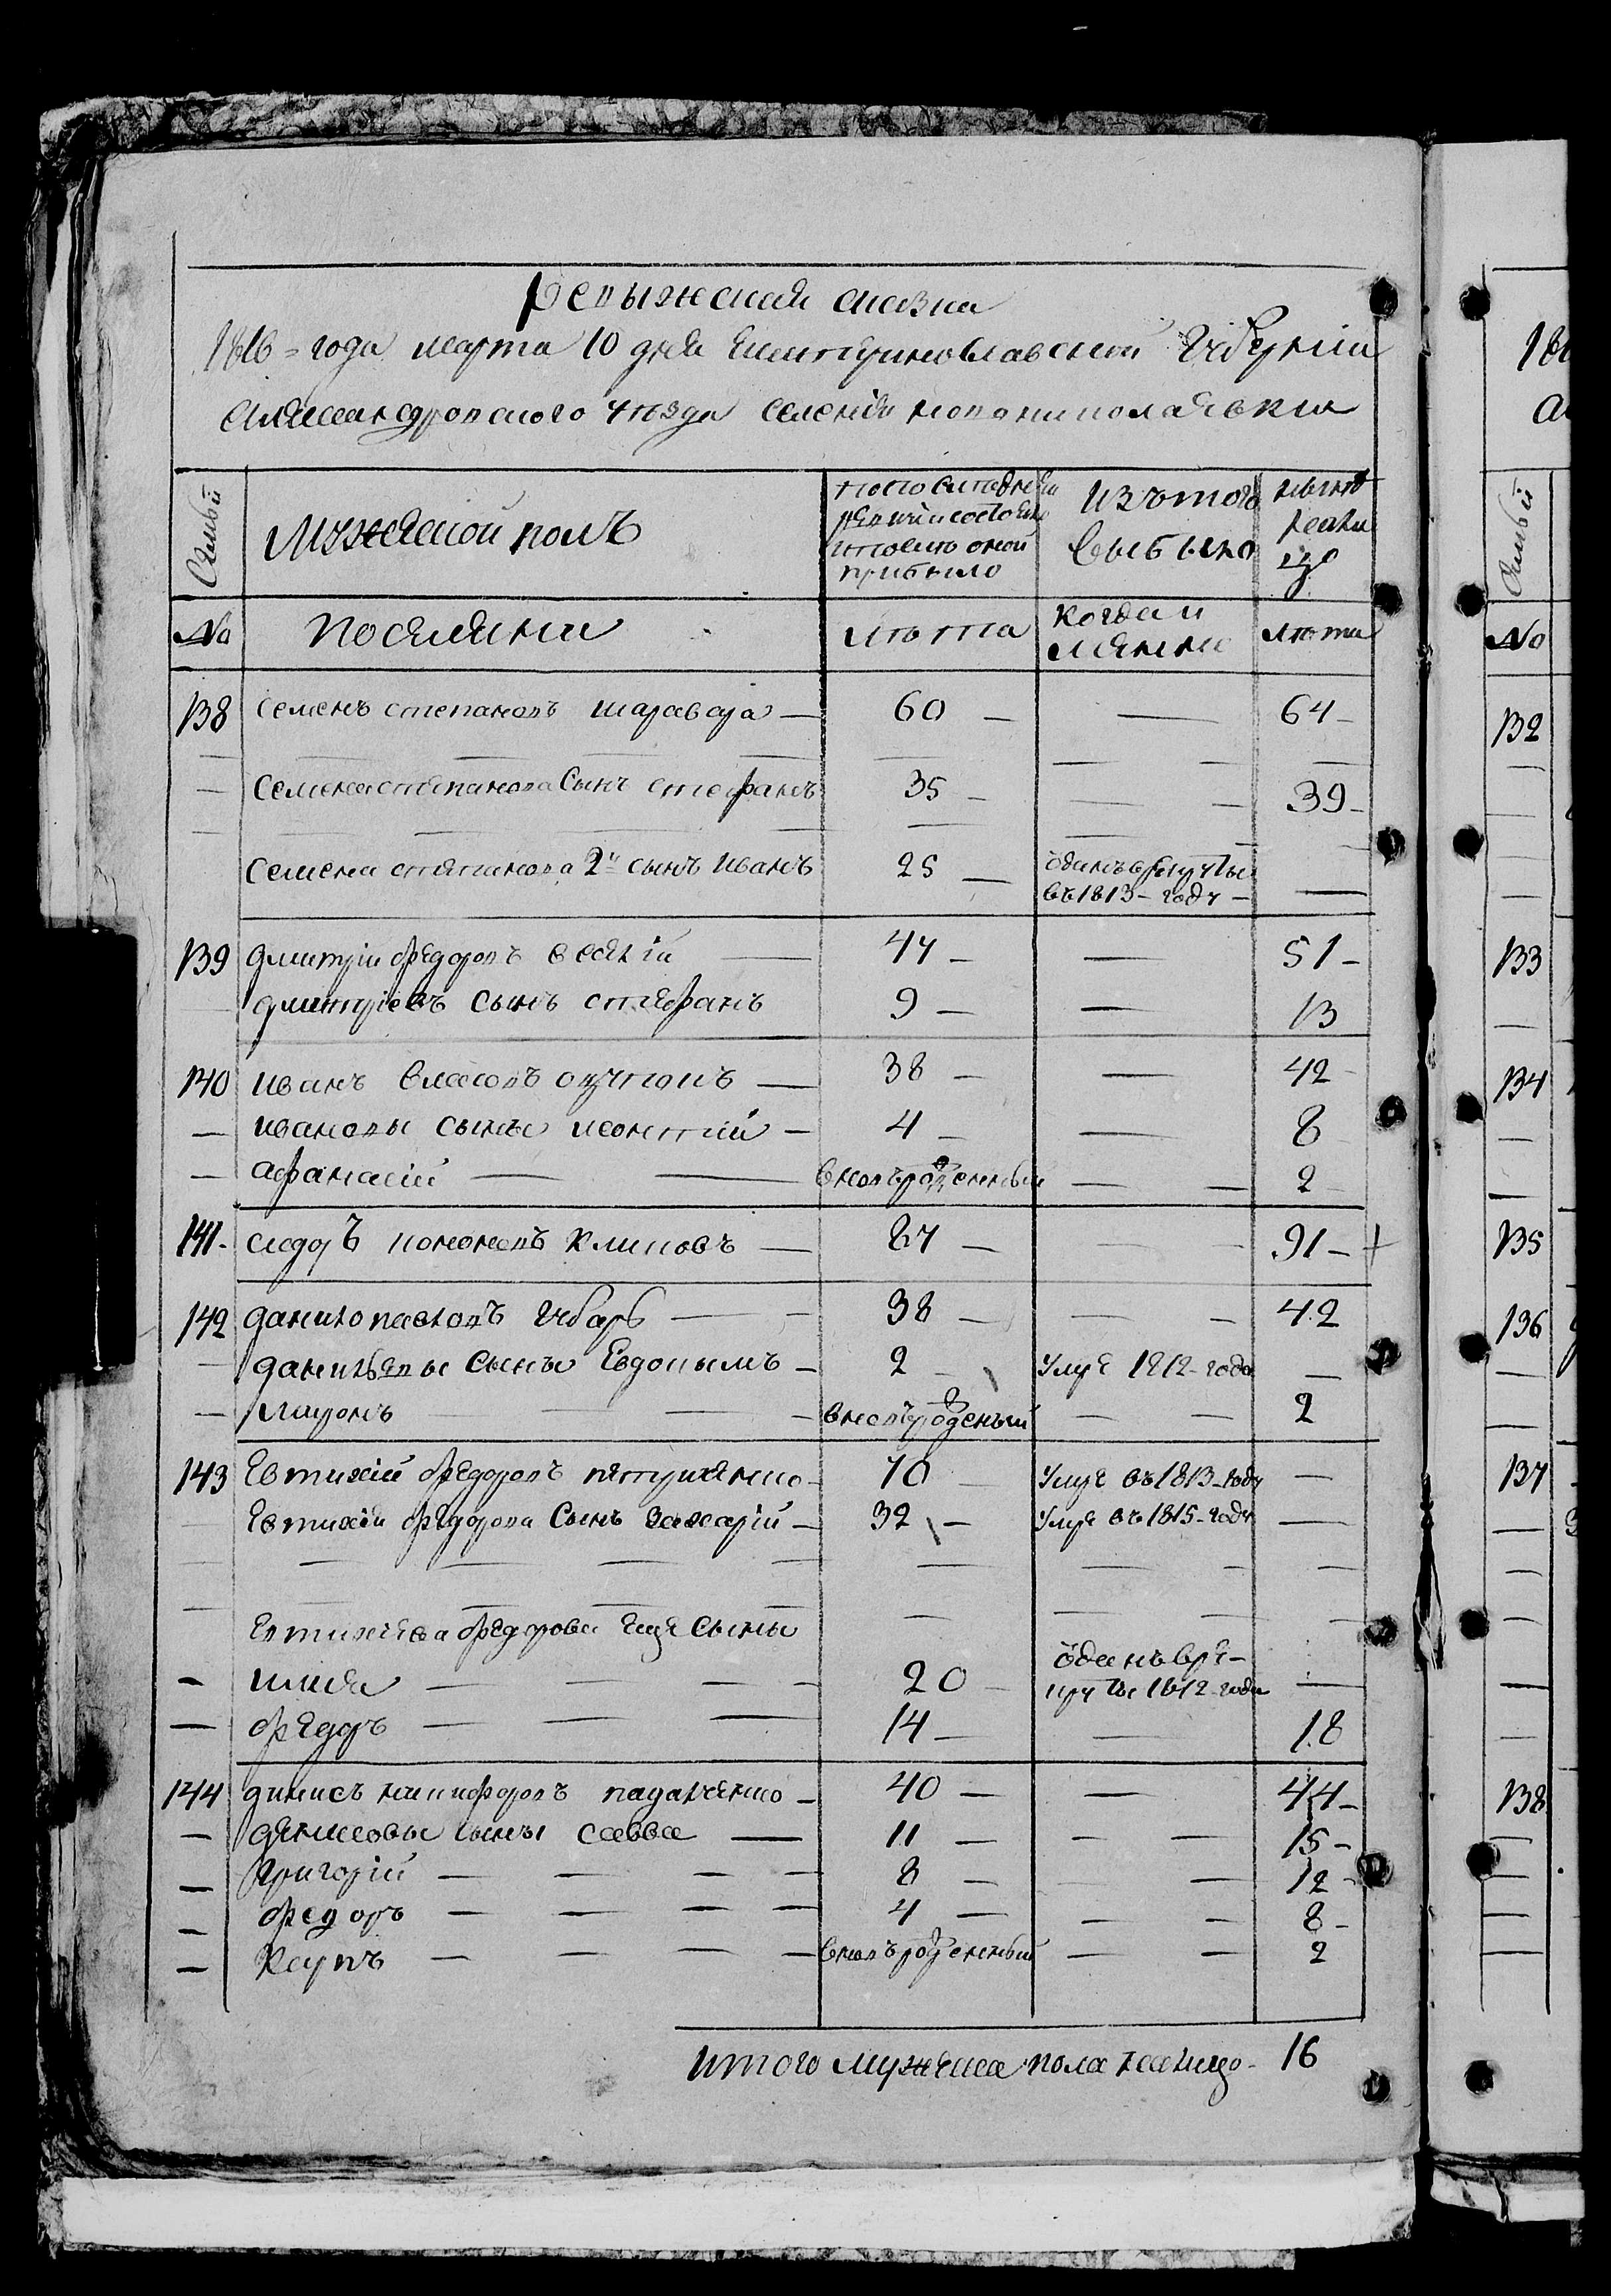 Ревыжская сказка
1816 = года марта 10 дня Екатеринославской Губерніи
Александровского уезда селенія новониколаевки
Семьи
Мужеской полъ
по последней ревизіи состояло и после оной прибыло
Изътого выбыло
ныне налицо
No
поселяни
лѣта
когда и
лѣта
138 семенъ степановъ шаравара — 60 — — 64 —
— Семена степанова Сынъ стефанъ 35 — — 39 —
Семена степанова 2й сынъ Иванъ 25 — —
въ 1813 - году —
139 дмитрій федоровъ 47 — — 51 —
дмитріевъ сынъ стефанъ 9 — — 13
140 иванъ власовъ — 38 — — 42
— ивановы сыны леонтій — 4 — — 8
— афанасій — вновърожденный — 2
141 - сидоръ кононовъ Климовъ — 87 — — 91 — +
142 данило павловъ Губарь — 38 — — 42
даниловы Сыны Евдокимъ — 2 — Умре 1812 - года —
— миронъ — вновърожденый — 2
143 Евтихій федоровъ петриченко — 70 Умре въ 1813 - году —
Евтихія федорова Сынъ захарій — 32 — Умре въ 1815 - году —
Евтихіева федорова еще Сыны
— илия — 20 — одинъ в ре-
круты 1812 - года —
— федоръ — 14 — — 18
144 динисъ никифоровъ падалченко — 40 — — 44 —
— денисовы сыны савва — 11 — — 15 —
— Григорій — 8 — — 12 —
— федоръ — 4 — — 8 —
— Карпъ — вновърожденный — 2
итого мужеска пола налицо - 16
18
а
Семьи
No
132
133
134
135
136
137
138